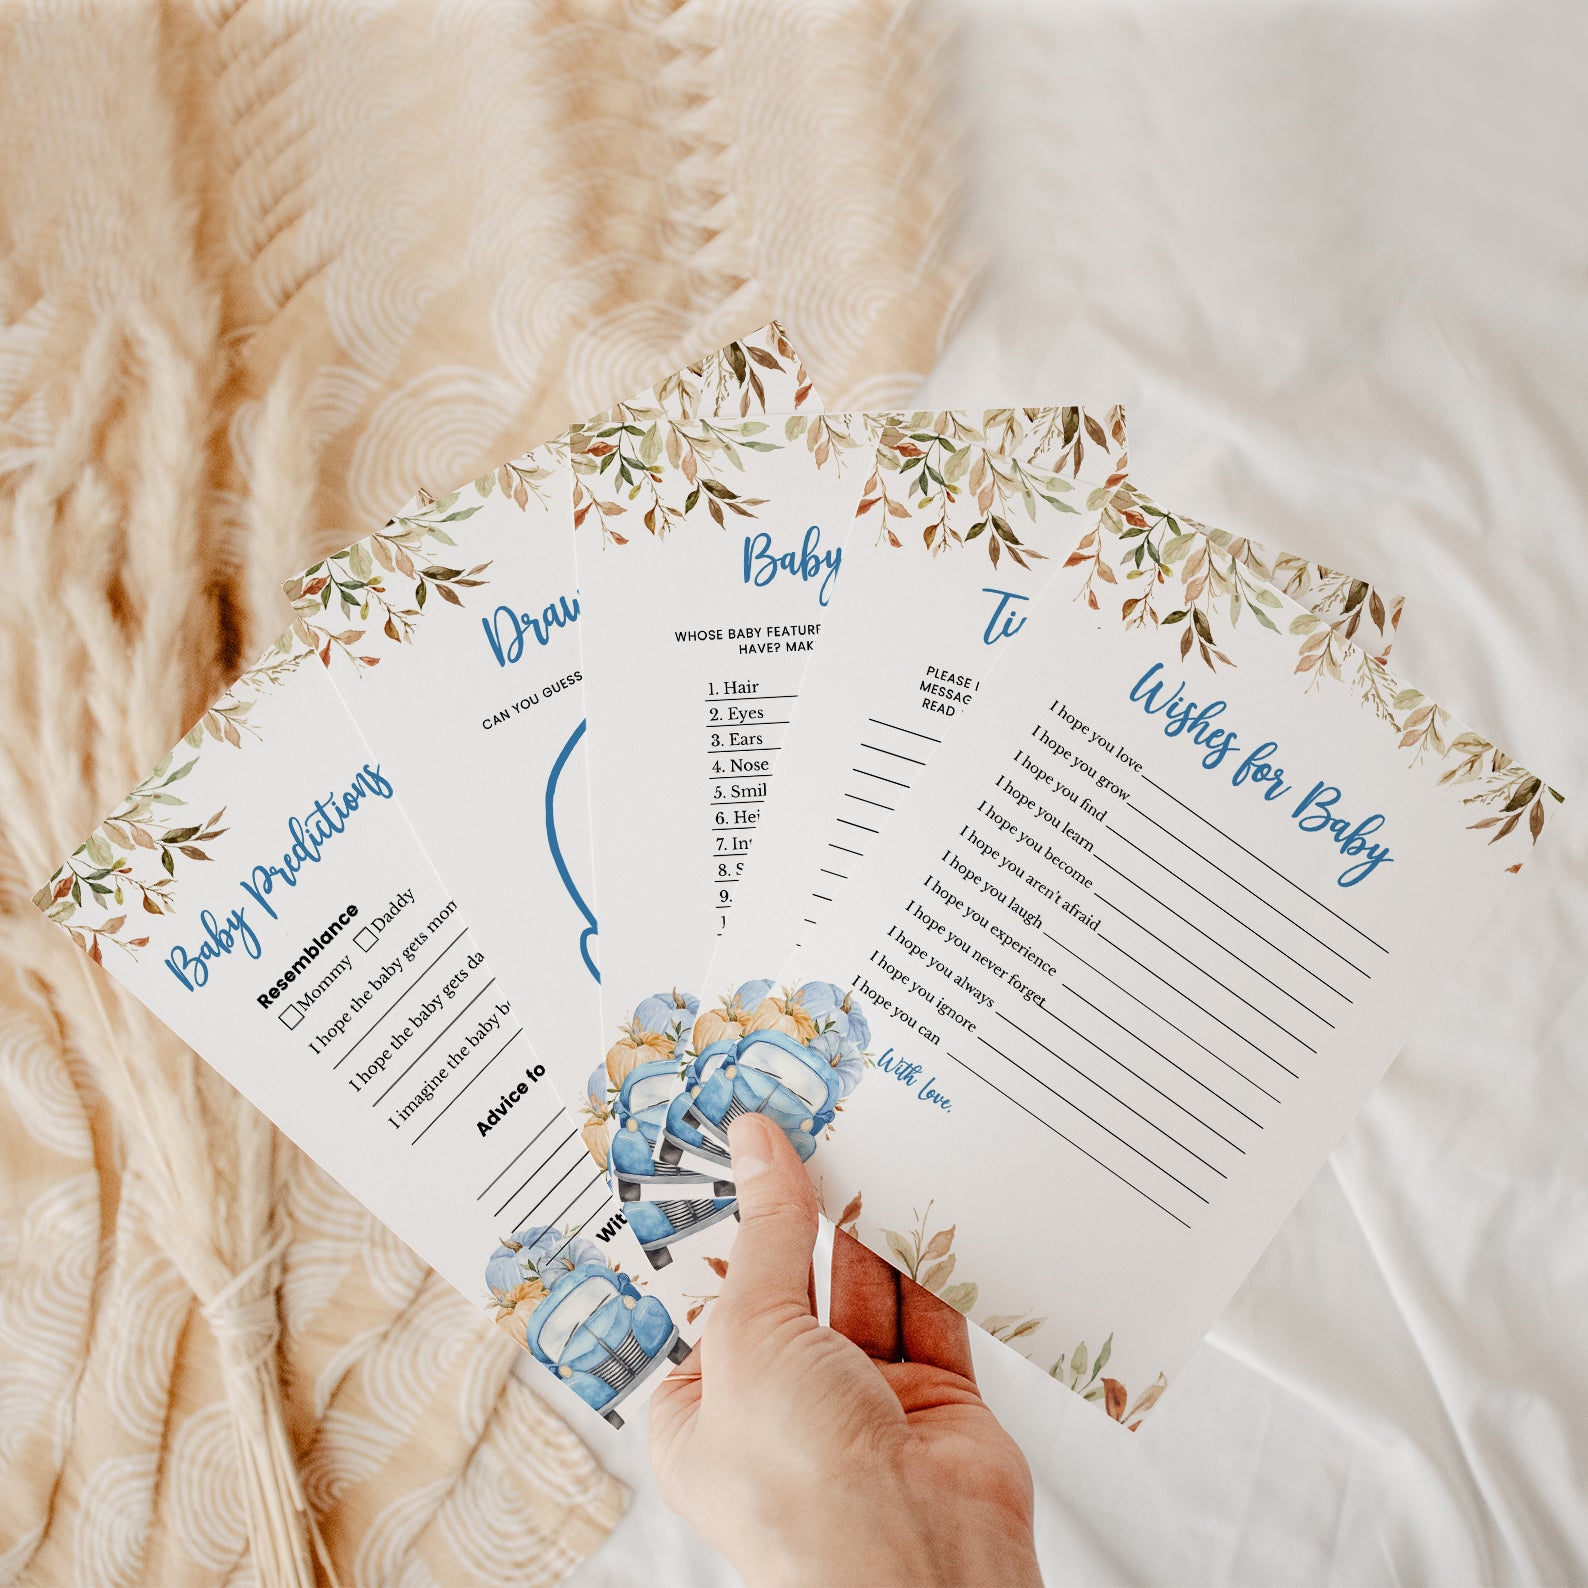 Baby Predictions
Resemblance
Mommy Daddy
I hope the baby gets
I hope the baby gets
I imagine the baby
Advice
CAN YOU GUESS
Baby
WHOSE BABY
HAVE?
1. Hair
2. Eyes
3. Ears
4. Nose
5.
6.
7.
8.
9.
PLEASE
READ
Wishes for Baby
I hope you love
I hope you grow
I hope you find
I hope you learn
I hope you become
I hope you aren't afraid
I hope you laugh
I hope you experience
I hope you never forget
I hope you always
I hope you ignore
I hope you can
With Love,